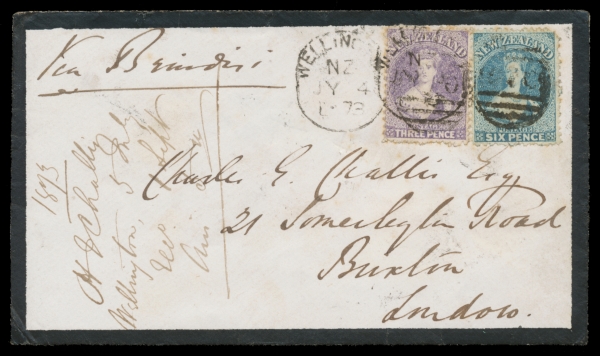 Via Brindisi
WELLINGTON
NZ
JY 4
73
NEW ZEALAND
THREE PENCE
NEW ZEALAND
POSTAGE
SIX PENCE
Charles G. Wallis Esq
21 Somerleyton Road
Brixton
London.
1873
Wellington, 5 July
Recd Sept
Ans